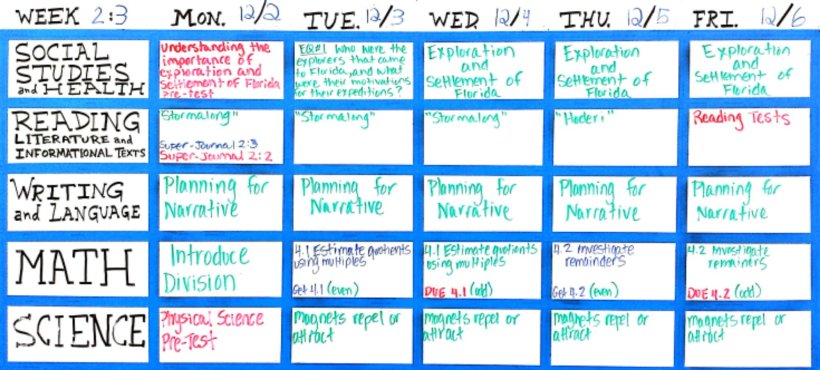 WEEK 2:3
MON. 12/2
TUE. 12/3
WED 12/4
THU. 12/5
FRI. 12/6
SOCIAL
STUDIES
and HEALTH
Understanding the
importance of
exploration and
Settlement of Florida
Pre-test
EQ#1 Who were the
explorers that came
to Florida, and what
were their motivations
for their expeditions?
Exploration
and
Settlement of
Florida
Exploration
and
Settlement of
Florida
Exploration
and
Settlement of
Florida
READING
LITERATURE and
INFORMATIONAL TEXTS
"Stormalong"
Super-Journal 2:3
Super-Journal 2:2
"Stormalong"
"Stormalong"
Reading Tests
WRITING
and LANGUAGE
Planning for
Narrative
Planning for
Narrative
Planning for
Narrative
Planning for
Narrative
Planning for
Narrative
MATH
Introduce
Division
4.1 Estimate quotients
using multiples
Get 4.1 (even)
4.1 Estimate quotients
using multiples
DUE 4.1 (odd)
4.2 Investigate
remainders
Get 4.2 (even)
4.2 Investigate
remainers
DUE 4.2 (odd)
SCIENCE
Physical Science
Pre-Test
magnets repel or
attract
magnets repel or
attract
magnets repel or
attract
magnets repel or
attract